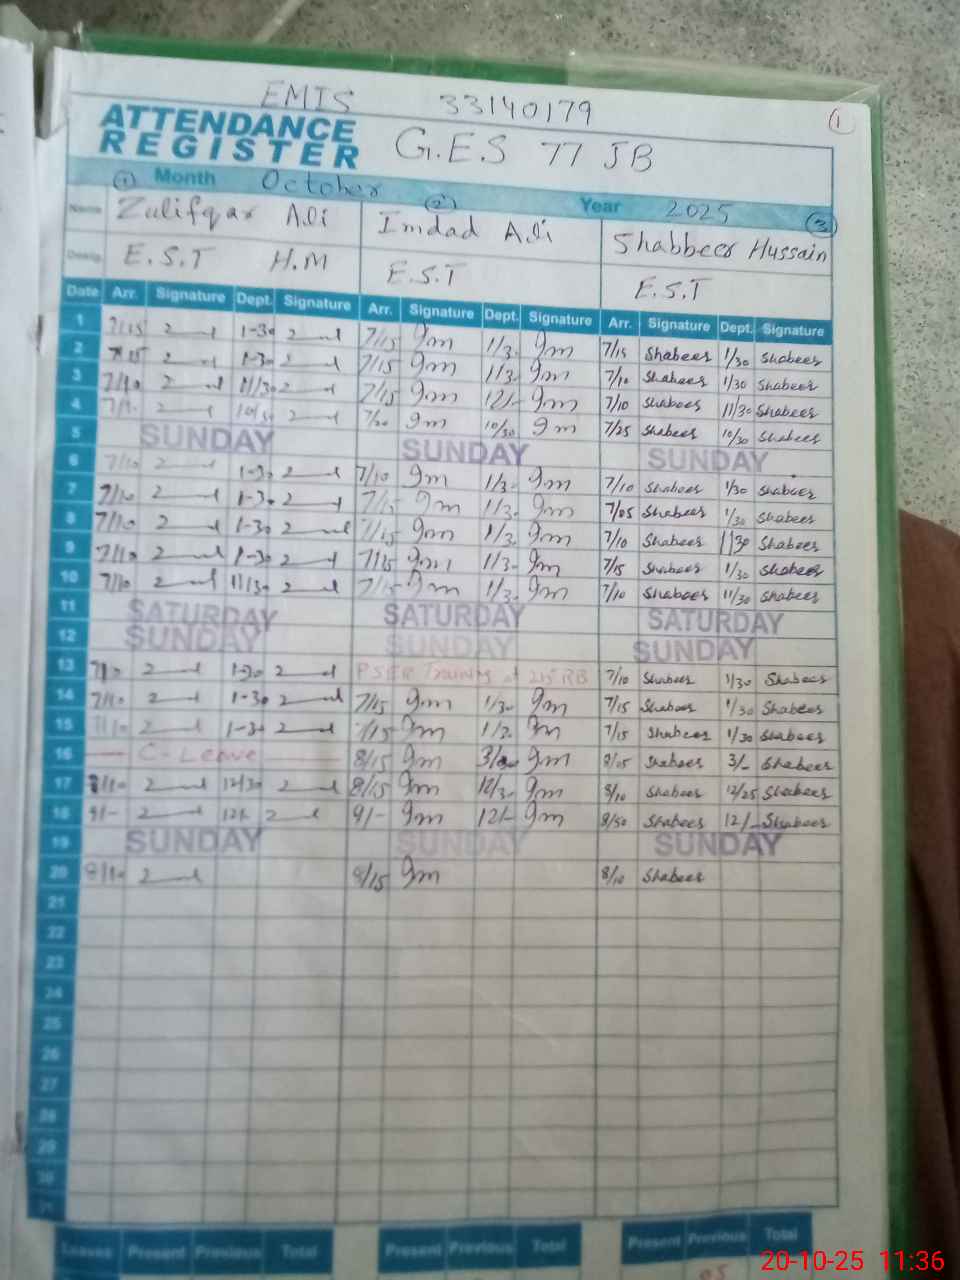 EMIS 33140179
1
ATTENDANCE
REGISTER
G.E.S 77 JB
Month October Year 2025
Name 1 Zulifqar Ali 2 Imdad Ali 3 Shabbeer Hussain
Desig. E.S.T H.M E.S.T E.S.T
Date Arr. Signature Dept. Signature Arr. Signature Dept. Signature Arr. Signature Dept. Signature
1 7/15 1-30 7/15 1/3. 7/15 Shabees 1/30 Shabees
2 7/15 1-30 7/15 1/3. 7/10 Shabees 1/30 Shabees
3 7/10 11/30 7/15 12/- 7/10 Shabees 11/30 Shabees
4 7/10 10/30 7/20 10/30 7/25 Shabees 10/30 Shabees
5 SUNDAY SUNDAY SUNDAY
6 7/10 1-30 7/10 1/3. 7/10 Shabees 1/30 Shabees
7 7/10 1-30 7/15 1/3. 7/05 Shabees 1/30 Shabees
8 7/10 1-30 7/15 1/3. 7/10 Shabees 1/30 Shabees
9 7/10 1-30 7/15 1/3. 7/15 Shabees 1/30 Shabees
10 7/10 11/30 7/15 1/3. 7/10 Shabees 11/30 Shabees
11 SATURDAY SATURDAY SATURDAY
12 SUNDAY SUNDAY SUNDAY
13 7/10 1-30 PSER Training at 215 RB 7/10 Shabees 1/30 Shabees
14 7/10 1-30 7/15 1/30 7/15 Shabees 1/30 Shabees
15 7/10 1-30 7/15 1/3. 7/15 Shabees 1/30 Shabees
16 C-Leave 8/15 8/05 Shabees 3/- Shabees
17 8/10 12/30 8/15 12/3. 8/10 Shabees 12/25 Shabees
18 9/- 12/- 9/- 12/- 8/50 Shabees 12/- Shabees
19 SUNDAY SUNDAY SUNDAY
20 8/10 8/15 8/10 Shabees
21
22
23
24
25
26
27
28
29
30
31
Leaves Present Previous Total Present Previous Total Present Previous Total
05
20-10-25 11:36